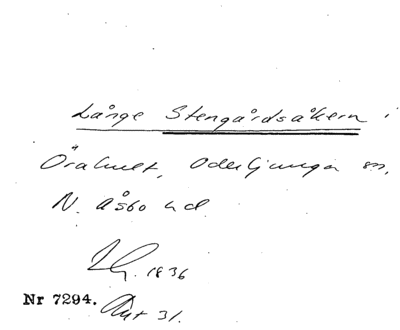 Långe Stengårdsåkern i
Örahult, Oderljunga sn,
N. Åsbo hd.
Lh. 1836
Nr 7294. Akt 31.